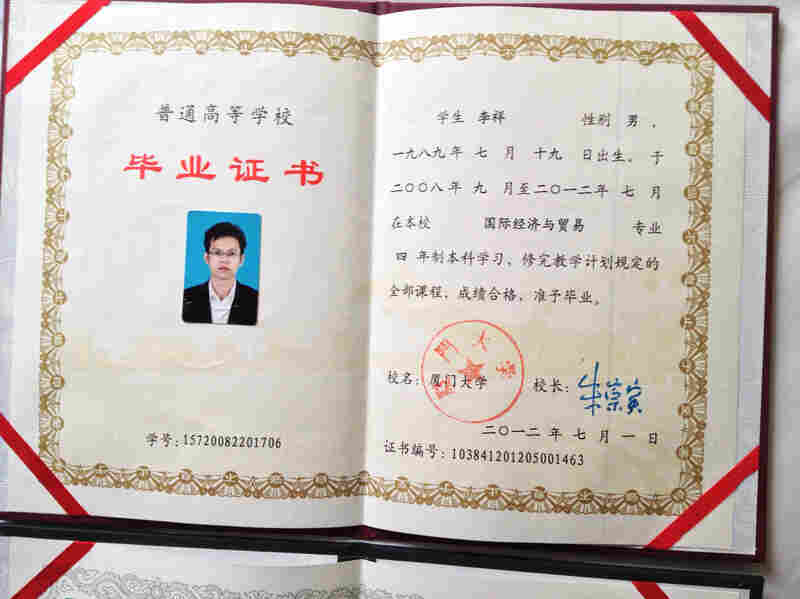 普通高等学校
毕业证书
学号:15720082201706
学生 李祥 性别 男，
一九八九年 七 月 十九 日出生。于
二〇〇八年 九 月至二〇一二年 七 月
在本校 国际经济与贸易 专业
四 年制本科学习、修完教学计划规定的
全部课程、成绩合格、准予毕业。
厦門大学
校名: 厦门大学 校长: 朱崇实
二〇一二年 七 月 一 日
证书编号: 103841201205001463